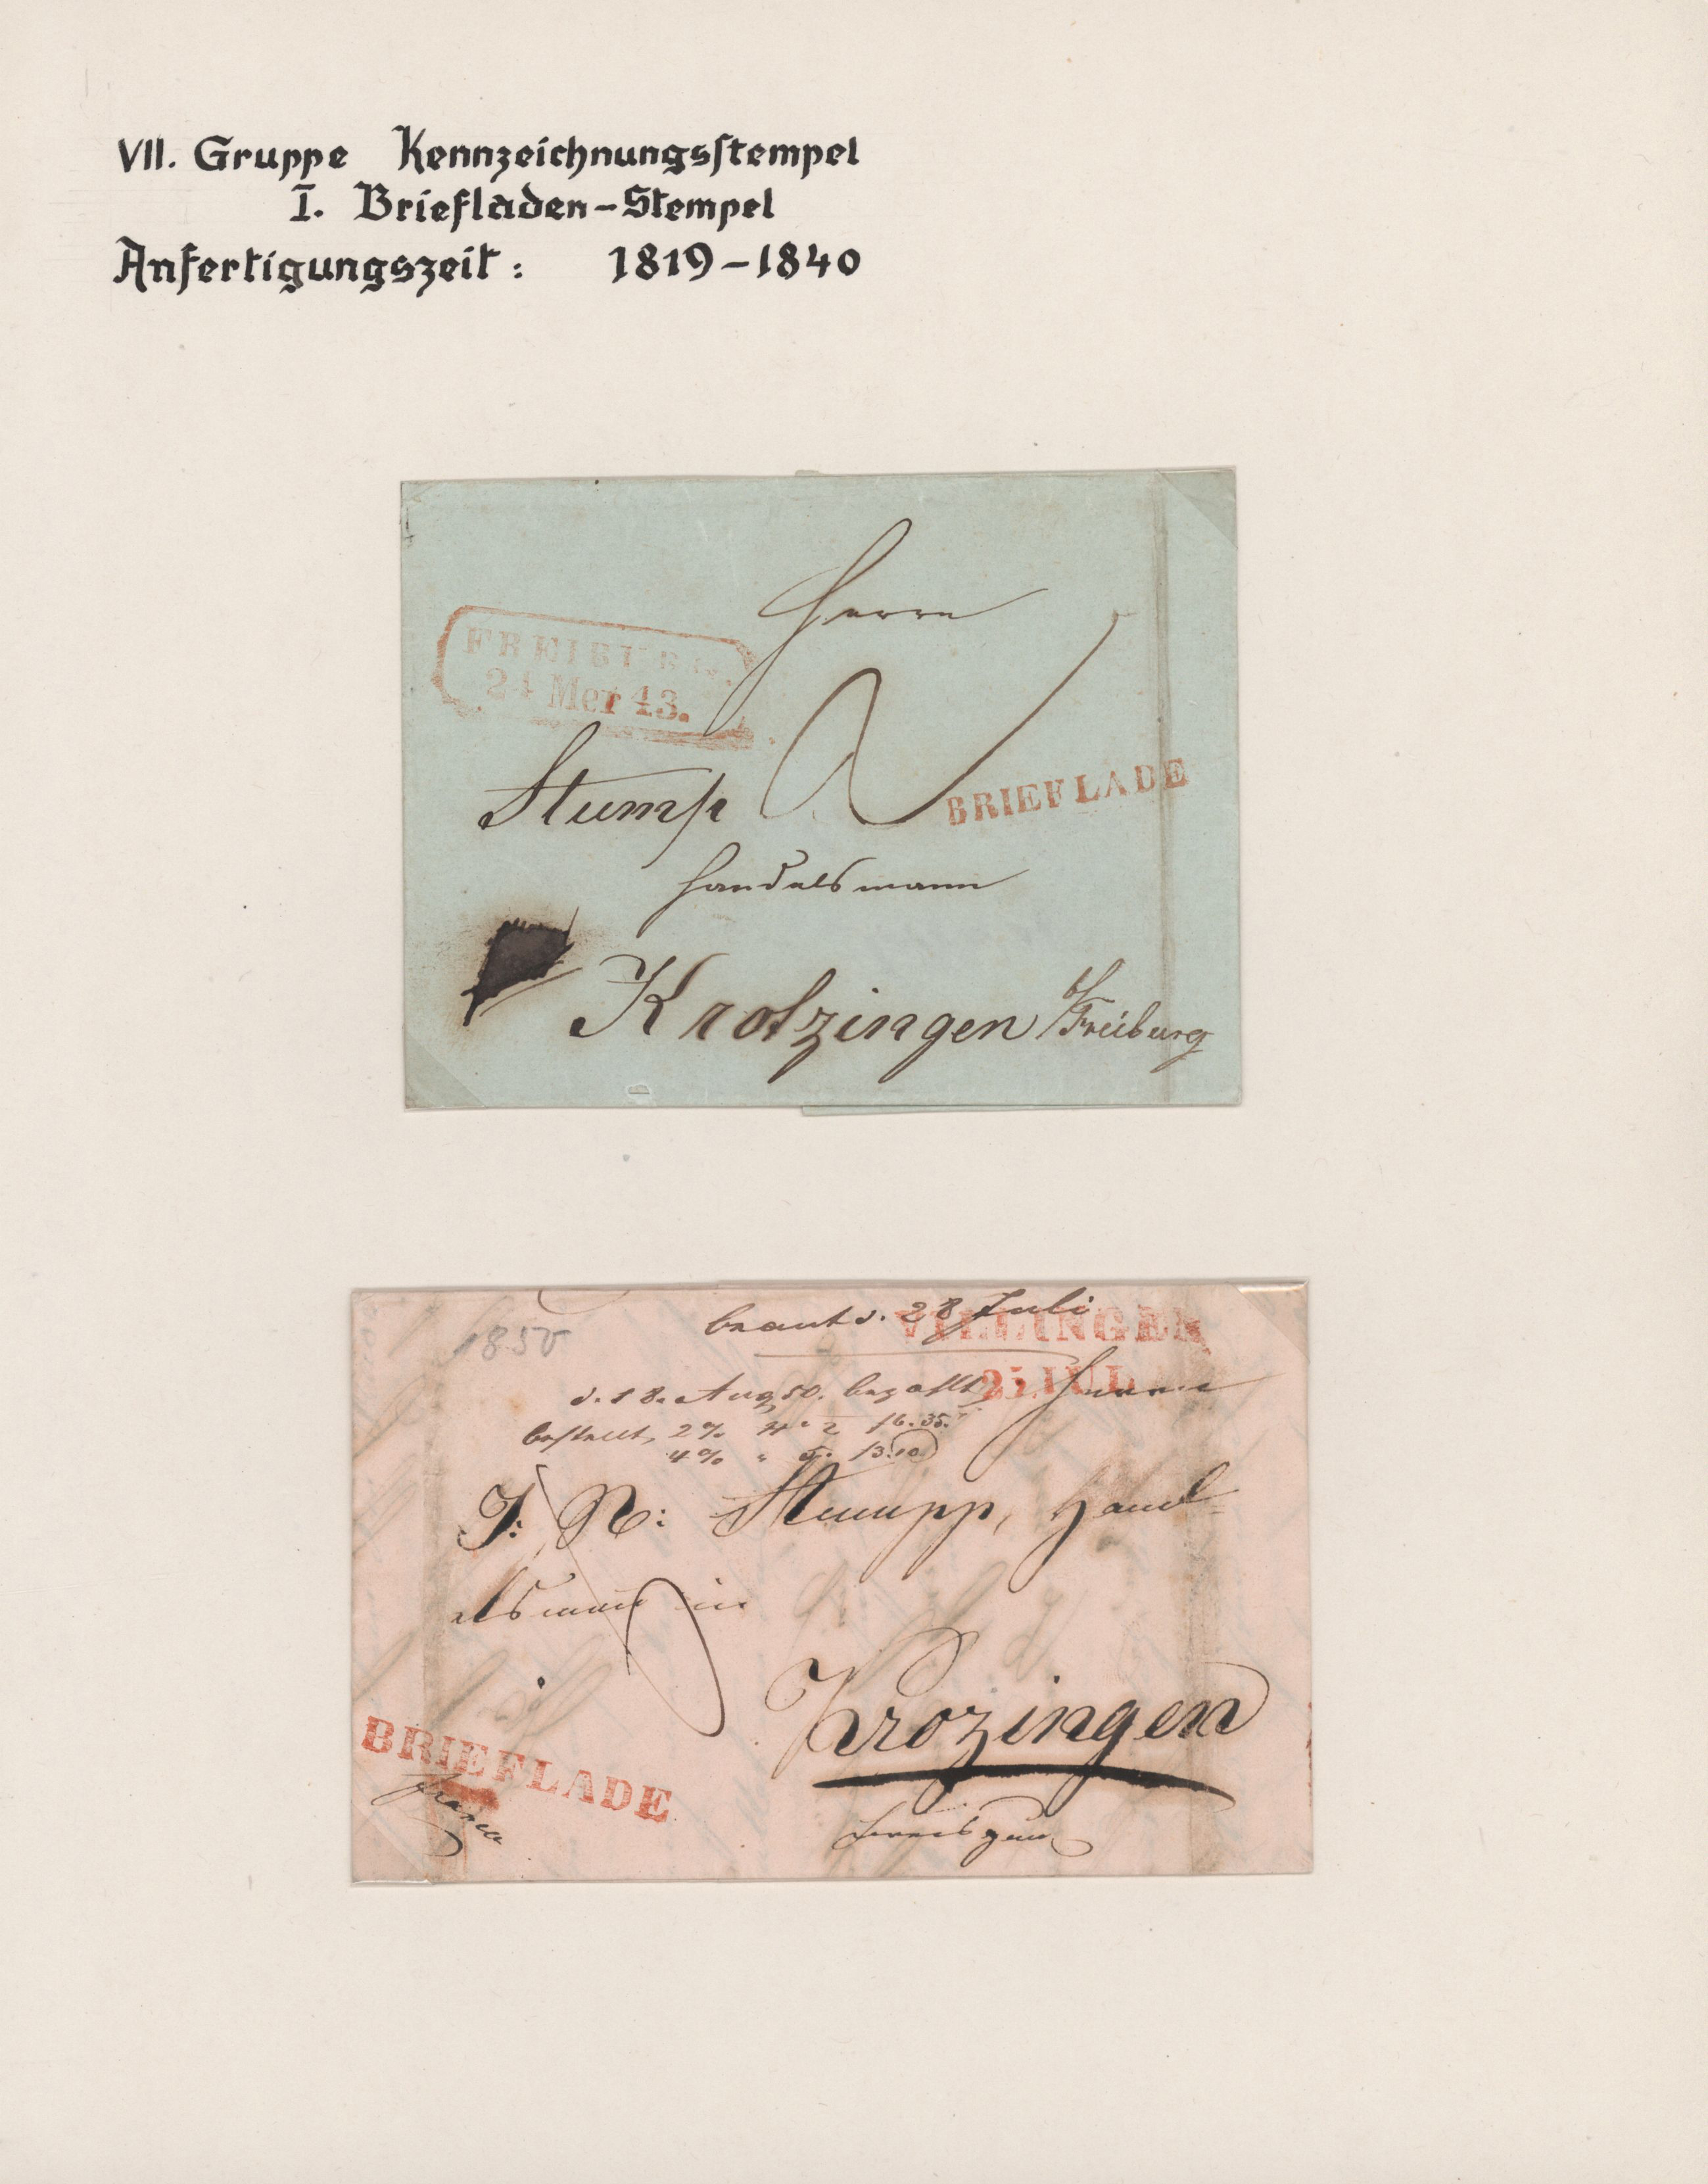 VII. Gruppe Kennzeichnungsstempel
I. Briefladen-Stempel
Anfertigungszeit: 1819-1840
Herrn
FREIBURG.
24 Mer 43.
Stump
BRIEFLADE
Handelsmann
Krotzingen b/Freiburg
beantw. 28 Juli
VILLINGEN
1850
d. 18. Aug 50. bezahlt
25 JUL
Herrn
bestellt, 2% N° 2 16.35.
4% " 5. 13.10
J: N: Stumpp, Hand
elsmann in
Krozingen
BRIEFLADE
franco